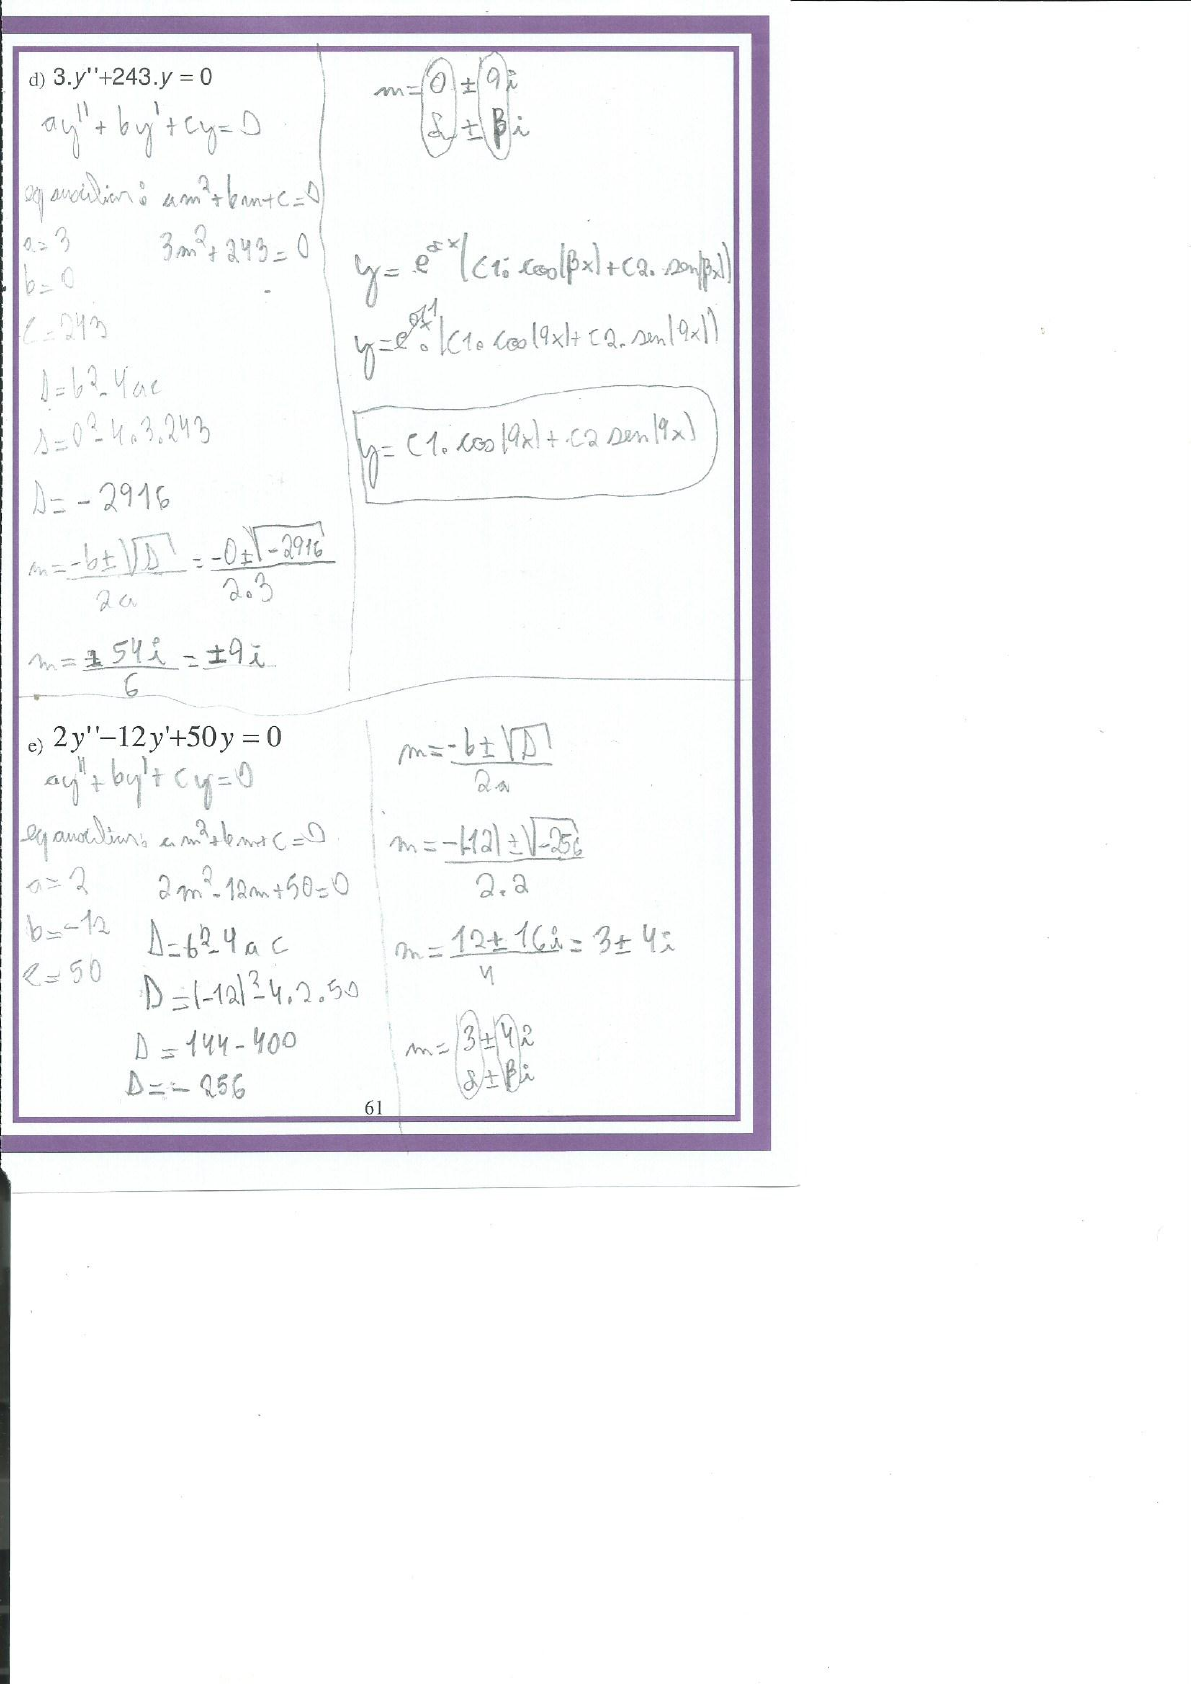 d) 3.y''+243.y = 0
ay'' + by' + cy = 0
eq auxiliar: am²+bm+c=0
a=3
3m²+243=0
b=0
c=243
Δ=b²-4ac
Δ=0²-4.3.243
Δ=-2916
m = (-b±√Δ)/2a = (-0±√-2916)/2.3
m = ±54i/6 = ±9i
m = 0 ± 9i
α ± βi
y = e^αx (C1. cos(βx)+C2. sen(βx))
y = e^0x 1 . (C1. cos(9x)+C2. sen(9x))
y = C1. cos(9x)+C2 sen(9x)
e) 2y''–12y'+50y = 0
ay''+by'+cy=0
eq auxiliar: am²+bm+c=0
a=2
2m²-12m+50=0
b=-12
c=50
Δ=b²-4ac
Δ=(-12)²-4.2.50
Δ=144-400
Δ=-256
m = (-b±√Δ)/2a
m = (-(-12)±√-256)/2.2
m = (12±16i)/4 = 3±4i
m = 3±4i
α±βi
61